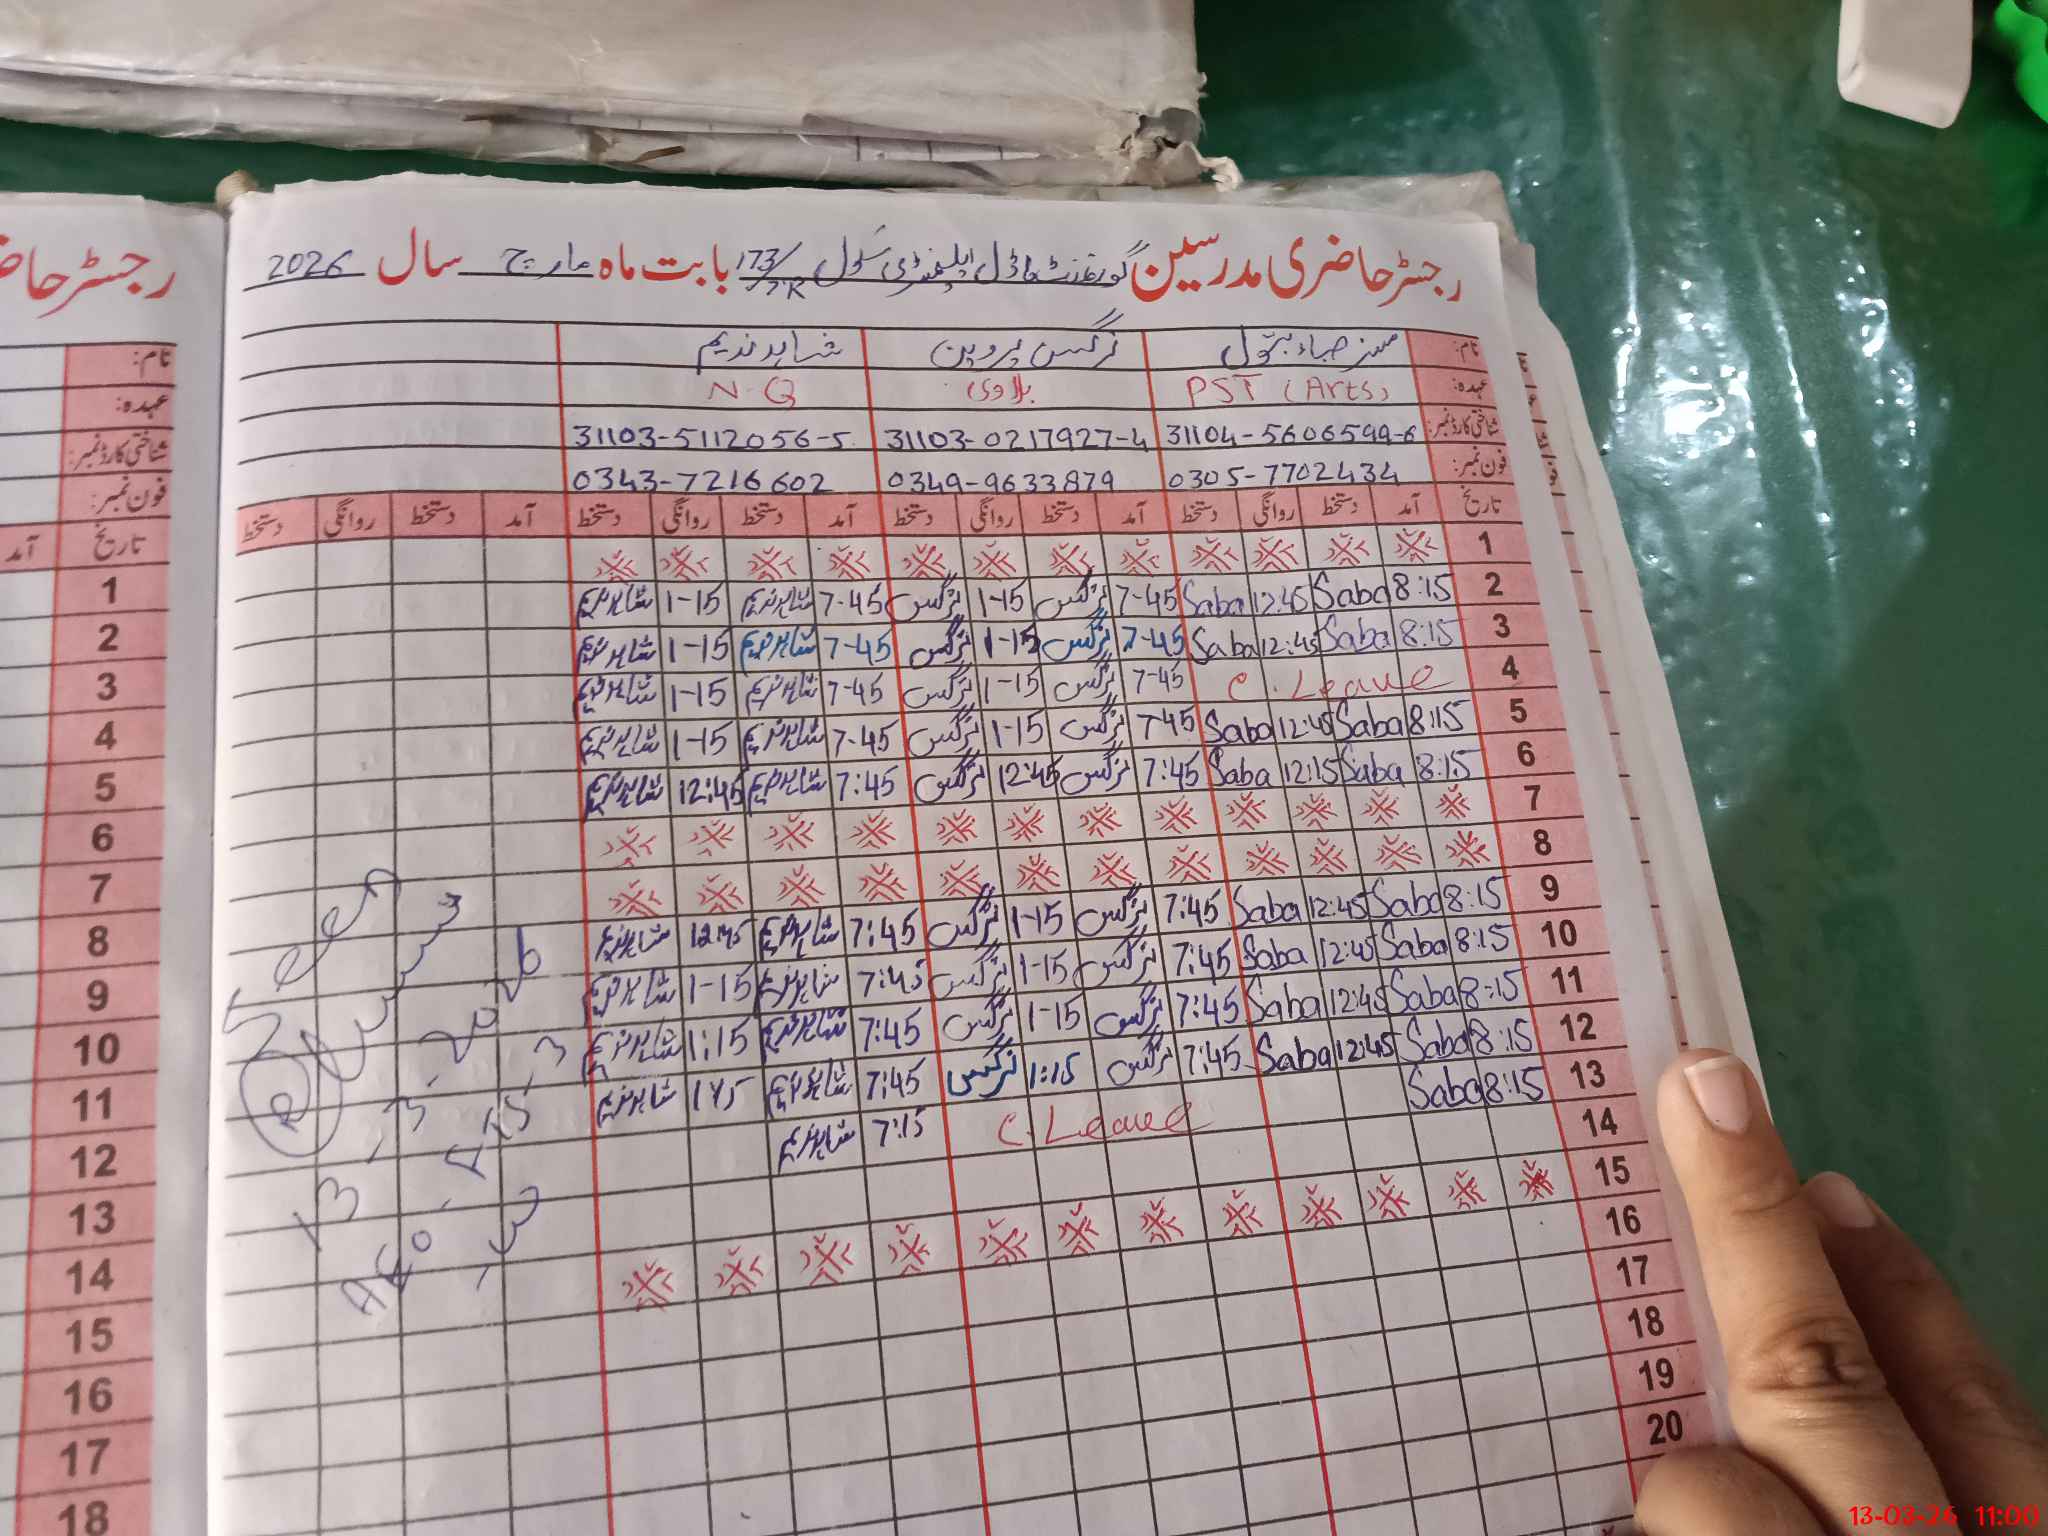 رجسٹر حاضری مدرسین گورنمنٹ ماڈل ایلیمنٹری سکول 173/7R بابت ماہ مارچ سال 2026
نام: مسز صباء بتول نرگس پروین شاہد ندیم
عہدہ: PST (Arts) بلاوی N-Q
شناختی کارڈ نمبر: 31104-5606599-6 31103-0217927-4 31103-5112056-5
فون نمبر: 0305-7702434 0349-9633879 0343-7216602
تاریخ آمد دستخط روانگی دستخط آمد دستخط روانگی دستخط آمد دستخط روانگی دستخط آمد دستخط روانگی دستخط
1
2 8:15 Saba 12:45 Saba 7-45 نرگس 1-15 نرگس 7-45 شاہد ندیم 1-15 شاہد ندیم
3 8:15 Saba 12:45 Saba 7-45 نرگس 1-15 نرگس 7-45 شاہد ندیم 1-15 شاہد ندیم
4 C. Leave 7-45 نرگس 1-15 نرگس 7-45 شاہد ندیم 1-15 شاہد ندیم
5 8:15 Saba 12:45 Saba 7-45 نرگس 1-15 نرگس 7-45 شاہد ندیم 1-15 شاہد ندیم
6 8:15 Saba 12:15 Saba 7:45 نرگس 12:45 نرگس 7:45 شاہد ندیم 12:45 شاہد ندیم
7
8
9 8:15 Saba 12:45 Saba 7:45 نرگس 1-15 نرگس 7:45 شاہد ندیم 12:45 شاہد ندیم
10 8:15 Saba 12:45 Saba 7:45 نرگس 1-15 نرگس 7:45 شاہد ندیم 1-15 شاہد ندیم
11 8:15 Saba 12:45 Saba 7:45 نرگس 1-15 نرگس 7:45 شاہد ندیم 1:15 شاہد ندیم
12 8:15 Saba 12:45 Saba 7:45 نرگس 1:15 نرگس 7:45 شاہد ندیم شاہد ندیم
13 8:15 Saba C. Leave 7:15 شاہد ندیم
14
15
16
17
18
19
20
Seen
13-3-2026
رجسٹر حاضری
نام:
عہدہ:
شناختی کارڈ نمبر:
فون نمبر:
تاریخ آمد
1
2
3
4
5
6
7
8
9
10
11
12
13
14
15
16
17
18
13-03-26 11:00